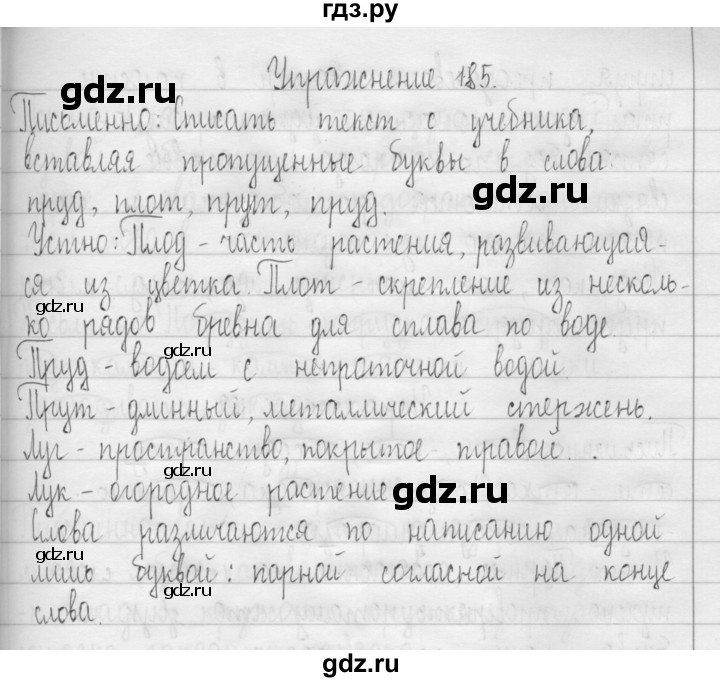 гдз.ру
Упражнение 185.
gdz.ru
Письменно: Списать текст с учебника,
вставляя пропущенные буквы в слова:
gdz.ru
пруд, плот, прут, пруд.
gdz.ru
Устно: Плод - часть растения, развивающая-
ся из цветка. Плот - скрепление, из несколь-
gdz.ru
gdz.ru
ко рядов бревна для сплава по воде.
Пруд - водоем с непроточной водой.
gdz.ru
Прут - длинный, металлический стержень.
Луг - пространство, покрытое травой.
gdz.ru
Лук - огородное растение
gdz.ru
Слова различаются по написанию одной
gdz.ru
лишь буквой: парной согласной на конце
gdz.ru
слова.
gdz.ru
gdz.ru